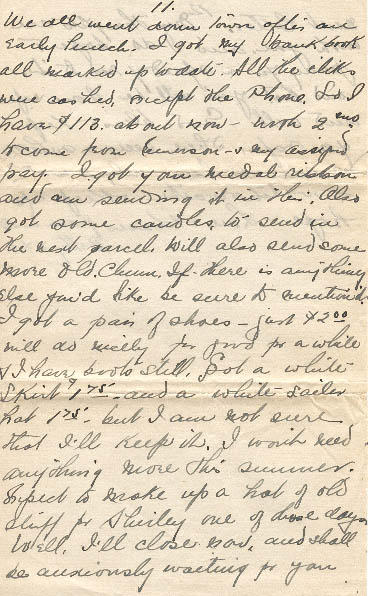 11.
We all went down town after an
early lunch. I got my bank book
all marked up to date. All the cheks
were cashed except the Phone. So I
have $113. about now - with 2 mo
to come from Emerson - & my assigned
pay. I got you medal ribbon
and am sending it in this. Also
got some candles to send in
the next parcel. Will also send some
more Old Chum. If there is anything
else you'd like be sure to mention it.
I got a pair of shoes - just $2.00
will do nicely for good for a while
& I have boots still. Got a white
skirt $1.75 - and a white sailor
hat 1.75 - but I am not sure
that I'll keep it. I won't need
anything more this summer.
Expect to make up a hat of old
stuff for Shirley one of these days.
Well. I'll close now, and shall
be anxiously waiting for you